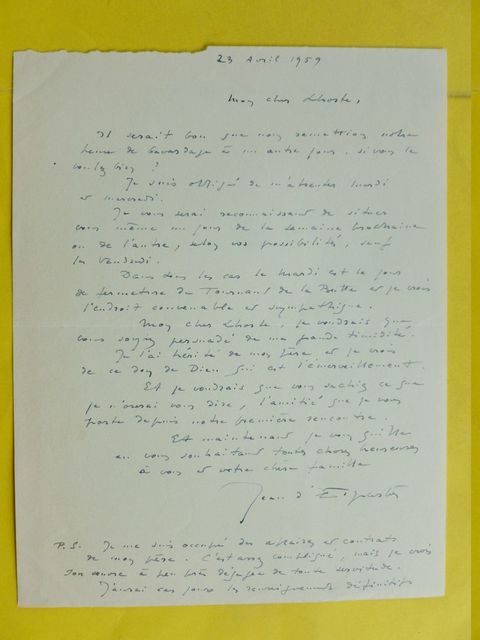 23 Avril 1959
Mon cher Lhoste,
Il serait bon que nous remettions notre
heure de bavardage à un autre jour, si vous le
voulez bien ?
Je suis obligé de m'absenter mardi
et mercredi.
Je vous serai reconnaissant de situer
vous même un jour de la semaine prochaine
ou de l'autre, selon vos possibilités, sauf
les vendredi.
Dans tous les cas le mardi est le jour
de fermeture du Tournant de la Butte et je crois
l'endroit convenable et sympathique.
Mon cher Lhoste, je voudrais que
vous soyez persuadé de ma grande timidité.
Je l'ai hérité de mon père et je crois
de ce don de Dieu qui est l'émerveillement.
Et je voudrais que vous sachiez ce que
je n'oserai vous dire, l'amitié que je vous
porte depuis notre première rencontre.
Et maintenant je vous quitte
en vous souhaitant toutes choses heureuses
à vous et votre chère famille
Jean d'Esparbès
P.S. Je me suis occupé des affaires et contrats
de mon père. C'est assez compliqué, mais je crois
son œuvre à peu près dégagée de toute servitude.
J'aurai ces jours les renseignements définitifs